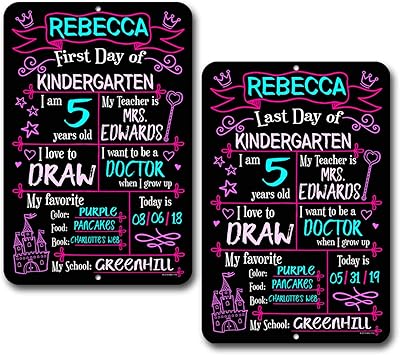 REBECCA
First Day of
KINDERGARTEN
I am 5 years old
My Teacher is
MRS.
EDWARDS
I love to
DRAW
I want to be a
DOCTOR
when I grow up
My favorite
Color: PURPLE
Food: PANCAKES
Book: CHARLOTTE'S WEB
Today is
08/06/18
My School: GREENHILL
REBECCA
Last Day of
KINDERGARTEN
I am 5 years old
My Teacher is
MRS.
EDWARDS
I love to
DRAW
I want to be a
DOCTOR
when I grow up
My favorite
Color: PURPLE
Food: PANCAKES
Book: CHARLOTTE'S WEB
Today is
05/31/19
My School: GREENHILL